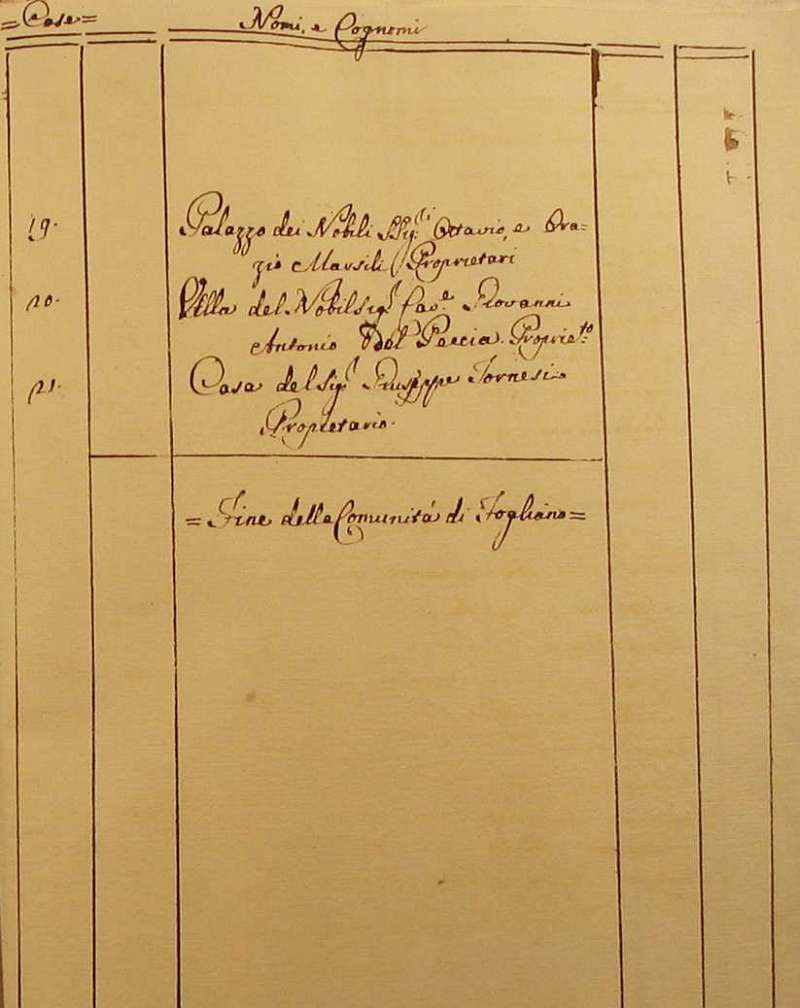 = Case =
Nomi, e Cognomi
19. Palazzo dei Nobili SSig.ri Ottavio, e Ora=
zio Marsili Proprietari
20. Villa del Nobil Sig.r Cav.e Giovanni
Antonio Del Peccia Propriet.o
21. Casa del Sig.r Giuseppe Fornesi
Proprietario.
= Fine della Comunità di Fogliano =